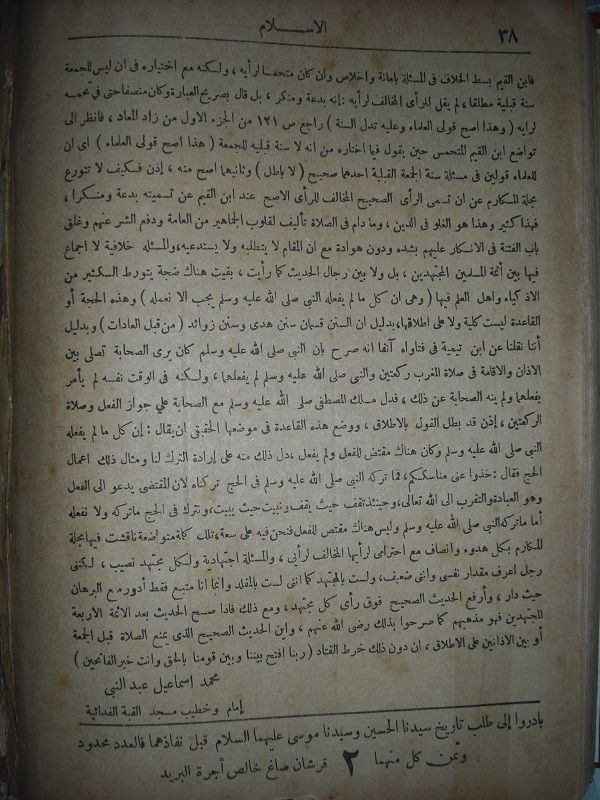 ٣٨
الاســـلام
فابن القيم بسط الخلاف فى المسئلة بامانة واخلاص وان كان متحمسا لرأيه ، ولكنه مع اختياره فى ان ليس للجمعة
سنة قبلية مطلقا ، لم يقل للرأى المخالف لرأيه : إنه بدعة ومنكر ، بل قال بصريح العبارة وكان منصفا حتى في تحمسه
لرايه ( وهذا اصح قولى العلماء وعليه تدل السنة ) راجع ص ١٢١ من الجزء الاول من زاد المعاد ، فانظر الى
تواضع ابن القيم المتحمس حين يقول فيما اختاره من انه لا سنة قبليه للجمعة ( هذا اصح قولى العلماء ) اى ان
للعلماء قولين فى مسئلة سنة الجمعة القبلية احدهما صحيح ( لا باطل ) وثانيهما اصح منه ، إذن فكيف لا تتورع
مجلة المكارم عن ان تسمى الرأى الصحيح المخالف للرأى الاصح عند ابن القيم عن تسميته بدعة ومنكرا ،
فهذا كثير وهذا هو الغلو فى الدين ، وما دام فى الصلاة تأليف لقلوب الجماهير من العامة ودفع الشر عنهم وغلق
باب الفتنة فى الانكار عليهم بشده ودون هوادة مع ان المقام لا يتطلبه ولا يستدعيه، والمسئله خلافية لا اجماع
فيها بين أئمة المسلمين المجتهدين ، بل ولا بين رجال الحديث كما رأيت ، بقيت هناك ضجة يتورط الكثير من
الاذكياء واهل العلم فيها ( وهى ان كل ما لم يفعله النبى صلى الله عليه وسلم يجب الا نعمله ) وهذه الحجة أو
القاعدة ليست كلية ولا على اطلاقها، بدليل ان السنن قسمان سنن هدى وسنن زوائد ( من قبل العادات ) وبدليل
أننا نقلنا عن ابن تيمية فى فتاواه آنفا انه صرح بان النبى صلى الله عليه وسلم كان يرى الصحابة تصلى بين
الاذان والاقامة فى صلاة المغرب ركعتين والنبى صلى الله عليه وسلم لم يفعلهما ، ولكنه فى الوقت نفسه لم يأمر
بفعلها ولم ينه الصحابة عن ذلك ، فدل مسلك المصطفى صلى الله عليه وسلم مع الصحابة علي جواز الفعل وصلاة
الركعتين ، إذن قد بطل القول بالاطلاق ، ووضع هذه القاعدة فى موضعها الحقيقى ان يقال : إن كل ما لم يفعله
النبى صلى الله عليه وسلم وكان هناك مقتض للفعل ولم يفعل ، دل ذلك منه على إرادة الترك لنا ومثال ذلك اعمال
الحج فقال : خذوا عنى مناسككم ، فما تركه النبى صلى الله عليه وسلم فى الحج تركناه لان المقتضى يدعو الى الفعل
وهو العبادة والتقرب الى الله تعالى، وحينئذ نقف حيث يقف ونبيت حيث يبيت، ونترك فى الحج ما تركه ولا نفعله
أما ما تركه النبي صلى الله عليه وسلم وليس هناك مقتض للفعل فنحن فيه على سعة، تلك كلمة متواضعة ناقشت فيها مجلة
المكارم بكل هدوء وانصاف مع احترامى لرأيها المخالف لرأيى ، والمسئلة اجتهادية ولكل مجتهد نصيب ، لكننى
رجل اعرف مقدار نفسى وانى ضعيف، ولست بالمجتهد كما اننى لست بالمقلد وانما انا متبع فقط أدور مع البرهان
حيث دار ، وأرفع الحديث الصحيح فوق رأى كل مجتهد، ومع ذلك فاذا صح الحديث بعد الائمة الاربعة
المجتهدين فهو مذهبهم كما صرحوا بذلك رضى الله عنهم ، واين الحديث الصحيح الذى يمنع الصلاة قبل الجمعة
أو بين الاذانين على الاطلاق ، ان دون ذلك خرط القتاد ( ربنا افتح بيننا وبين قومنا بالحق وانت خير الفاتحين )
محمد اسماعيل عبد النبى
إمام وخطيب مسجد القبة الفدائية
بادروا إلى طلب تاريخ سيدنا الحسين وسيدنا موسى عليهما السلام قبل نفاذهما فالعدد محدود
وثمن كل منهما ٢ قرشان صاغ خالص أجرة البريد